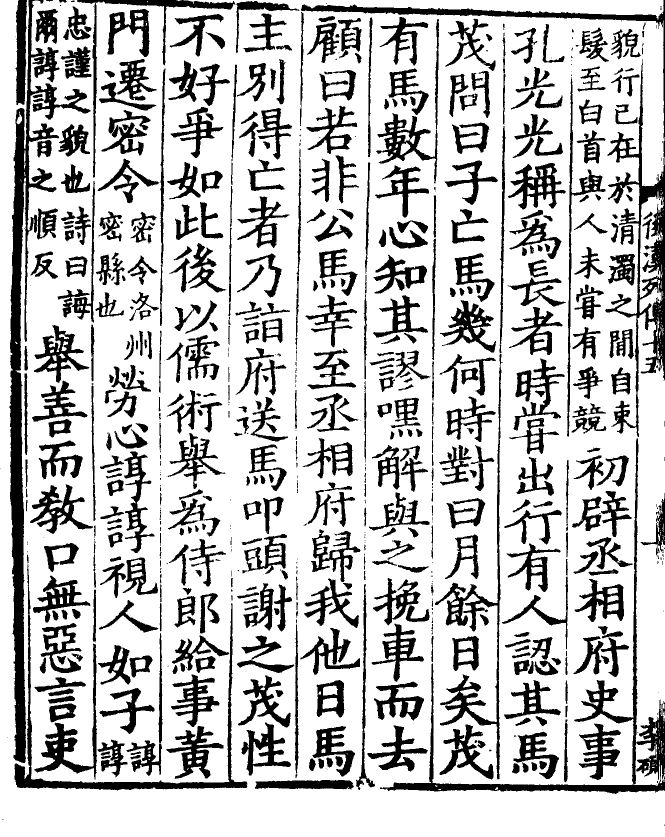 後漢列傳十五
一
李碩
貌行已在於清濁之間自束
髮至白首與人未嘗有爭競
初辟丞相府史事
孔光光稱爲長者時嘗出行有人認其馬
茂問曰子亡馬幾何時對曰月餘日矣茂
有馬數年心知其謬嘿解與之挽車而去
顧曰若非公馬幸至丞相府歸我他日馬
主別得亡者乃詣府送馬叩頭謝之茂性
不好爭如此後以儒術舉爲侍郎給事黃
門遷密令
密令洛州
密縣也
勞心諄諄視人如子
諄諄
忠謹之貌也詩曰誨
爾諄諄音之順反
舉善而教口無惡言吏